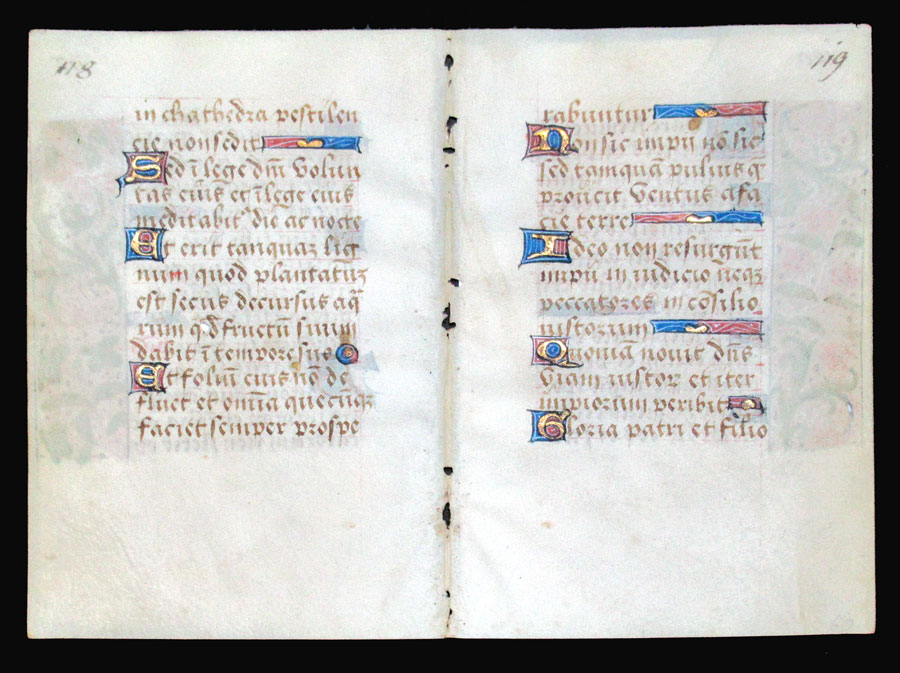 118
in chathedra pestilen
cie non sedit
Sed ī lege dn̄i Volun
tas eius et ī lege eius
meditabit᷒ die ac nocte
Et erit tanquaz lig
num quod plantatuz
est secus decursus aq̄
rum qd̓ fructū suum
dabit ī tempore suo
Et foliū eius nō de
fluet et om̄ia quecūqz
faciet semper prospe
119
rabuntur
Non sic impij nō sic
sed tamquā puluis q̄
proicit Ventus a fa
cie terre
Ideo non resurgūt
impij in iudicio neqz
peccatores in cōsilio
iustorum
Quoniā nouit dn̄s
Viam iustoꝝ et iter
impiorum peribit
Gloria patri et filio